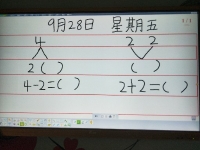 9月28日 星期五
4 2 2
2( ) ( )
4-2=( ) 2+2=( )